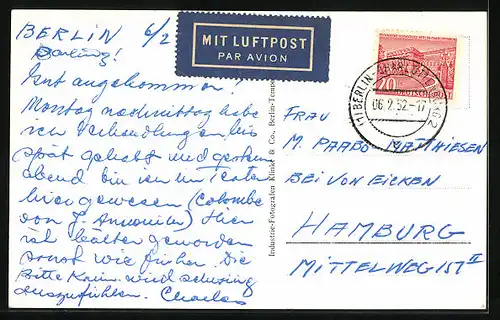 BERLIN 6/2
Darling!
Gut angekommen!
Montag nachmittag habe
ich Verhandlungen bis
spät gehabt und gestern
abend bin ich im Teater
hier gewesen (Colombe
von J. Annouilh) Hier
ist kälter geworden
sonst wie früher. Die
Bitte Karin wird
auszuführen. Charles
MIT LUFTPOST
PAR AVION
Industrie-Fotografen Klinke & Co., Berlin-Tempe
20
BERLIN-CHARLOTTENBURG 2
06.2.52.-17
FRAU
M. PAABO MATTHIESEN
BEI VON EICKEN
HAMBURG
MITTELWEG 151 II